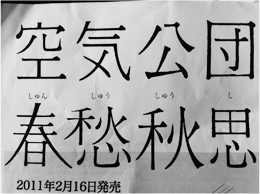 空気公団
しゅん しゅう しゅう し
春愁秋思
2011年2月16日発売